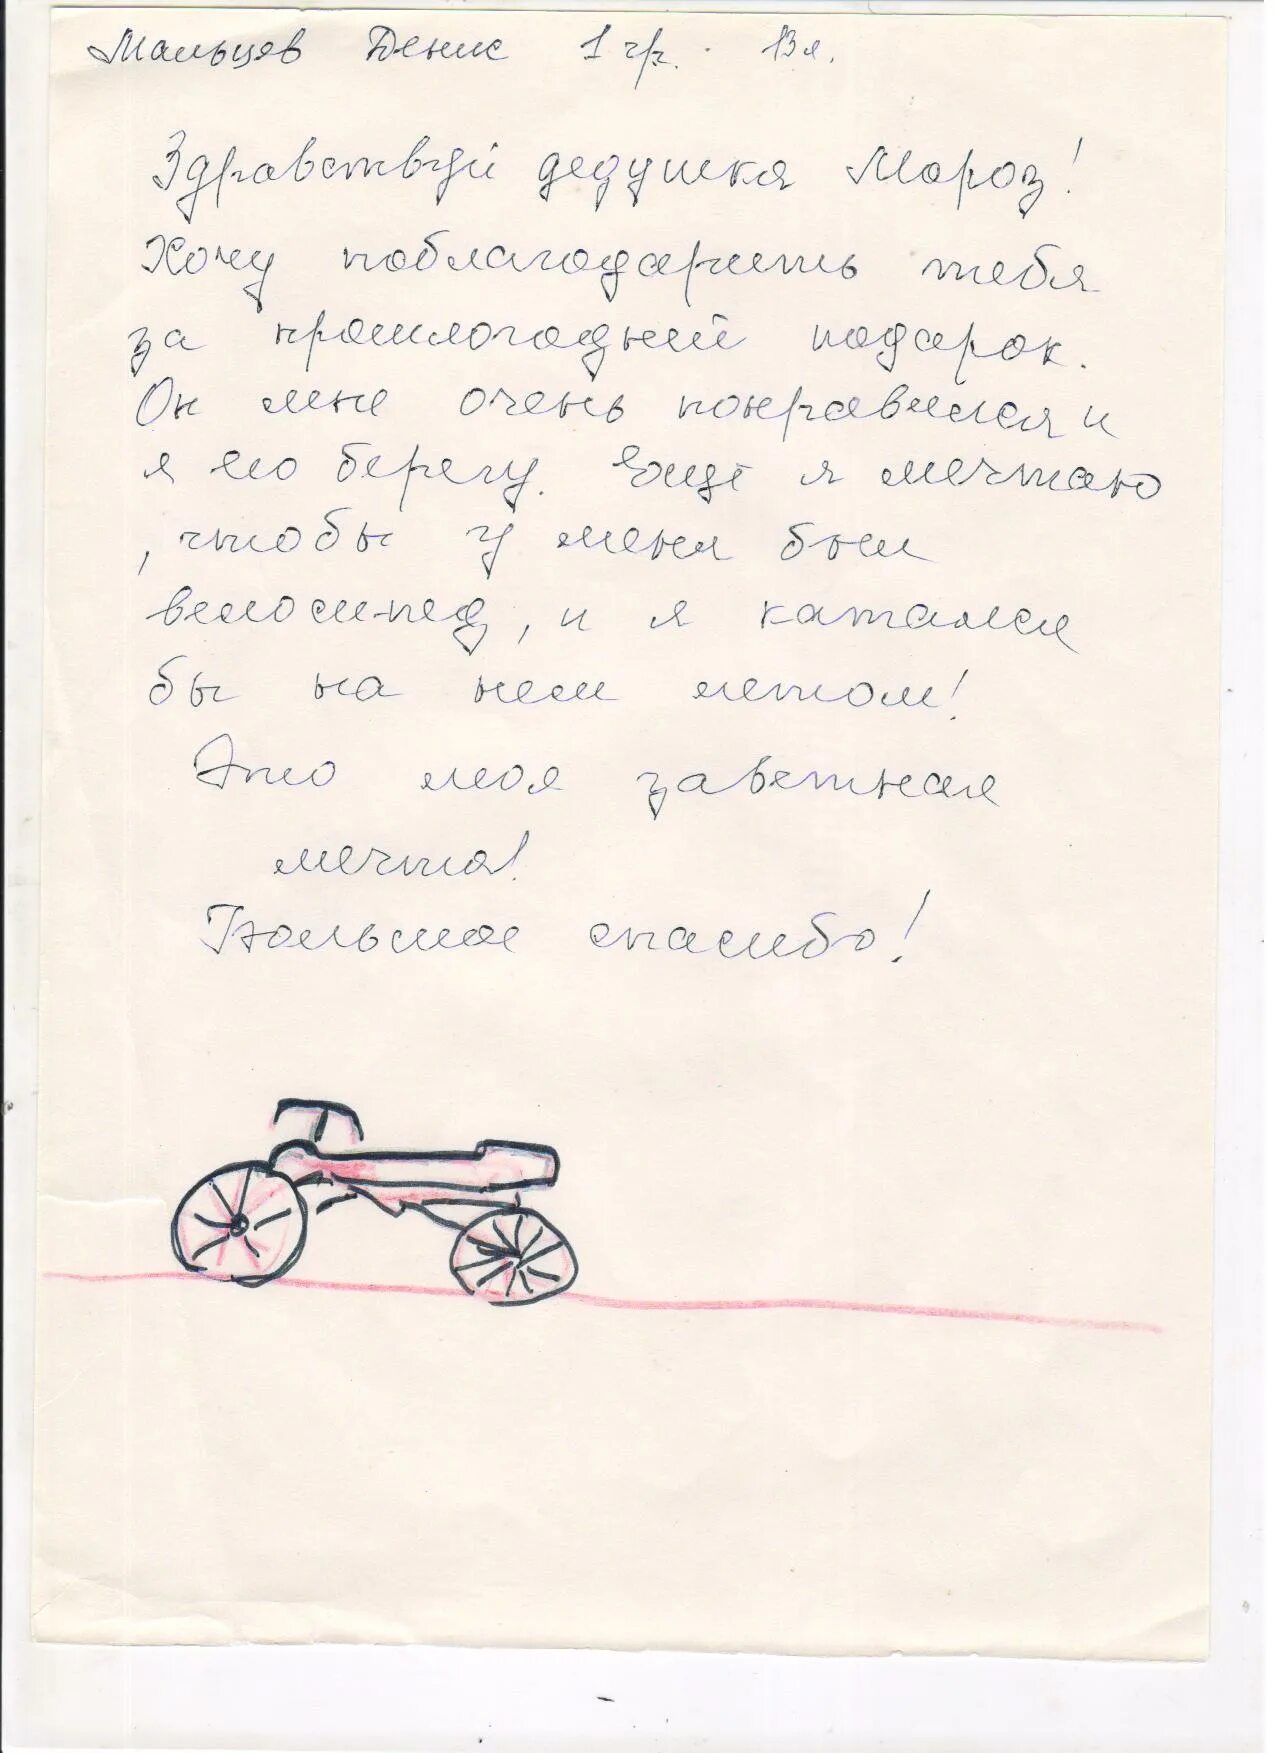 Мальцев Денис 1 гр. 13 л.
Здравствуй дедушка Мороз!
Хочу поблагодарить тебя
за прошлогодний подарок.
Он мне очень понравился и
я его берегу. Ещё я мечтаю
, чтобы у меня был
велосипед, и я катался
бы на нем летом!
Это моя заветная
мечта!
Большое спасибо!